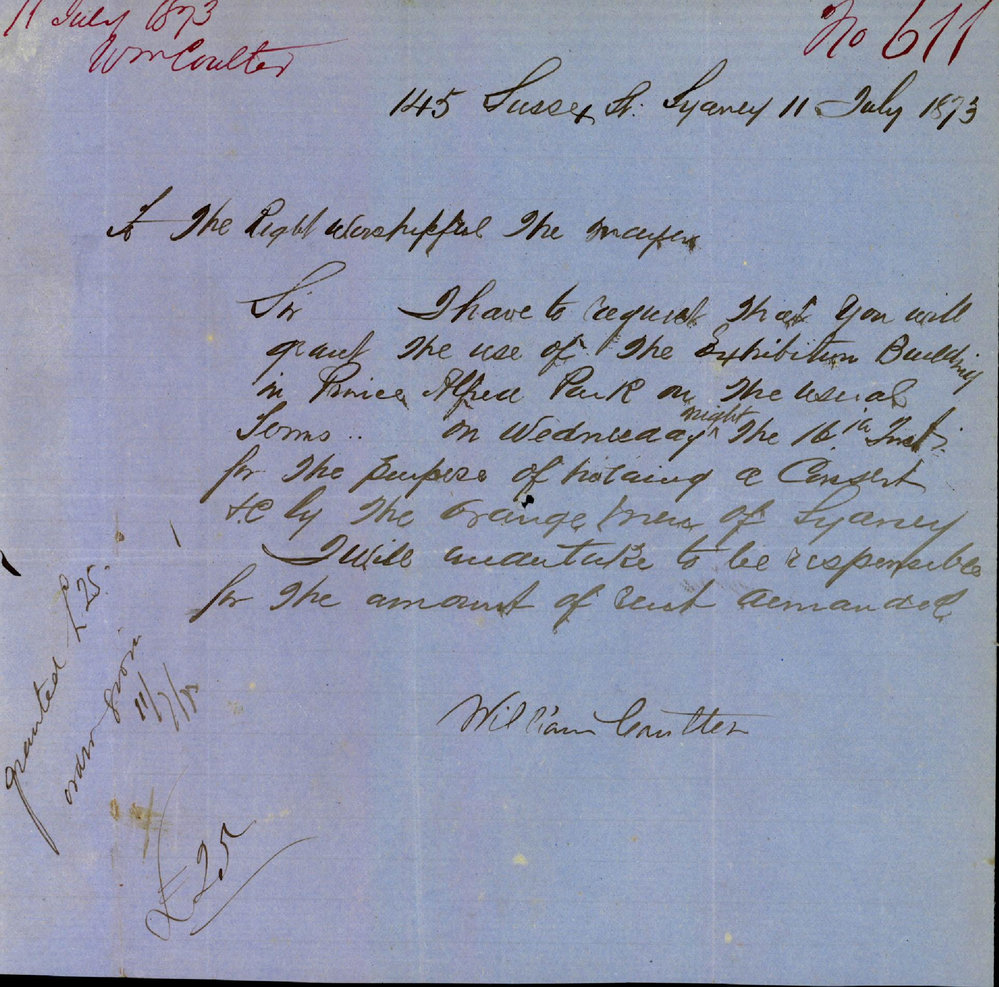 11 July 1873
Wm Coulter
No 611
145 Sussex St. Sydney 11 July 1873
To The Right Worshipful The Mayor
Sir I have to request that you will
grant the use of the Exhibition Building
in Prince Alfred Park on the usual
Terms .. On Wednesday night the 16th Inst.
for the purpose of holding a Consert
&c by the Orange men of Sydney
I will undertake to be responsible
for the amount of rent demanded
William Coulter
granted £25.
order given
11/7/73
£25